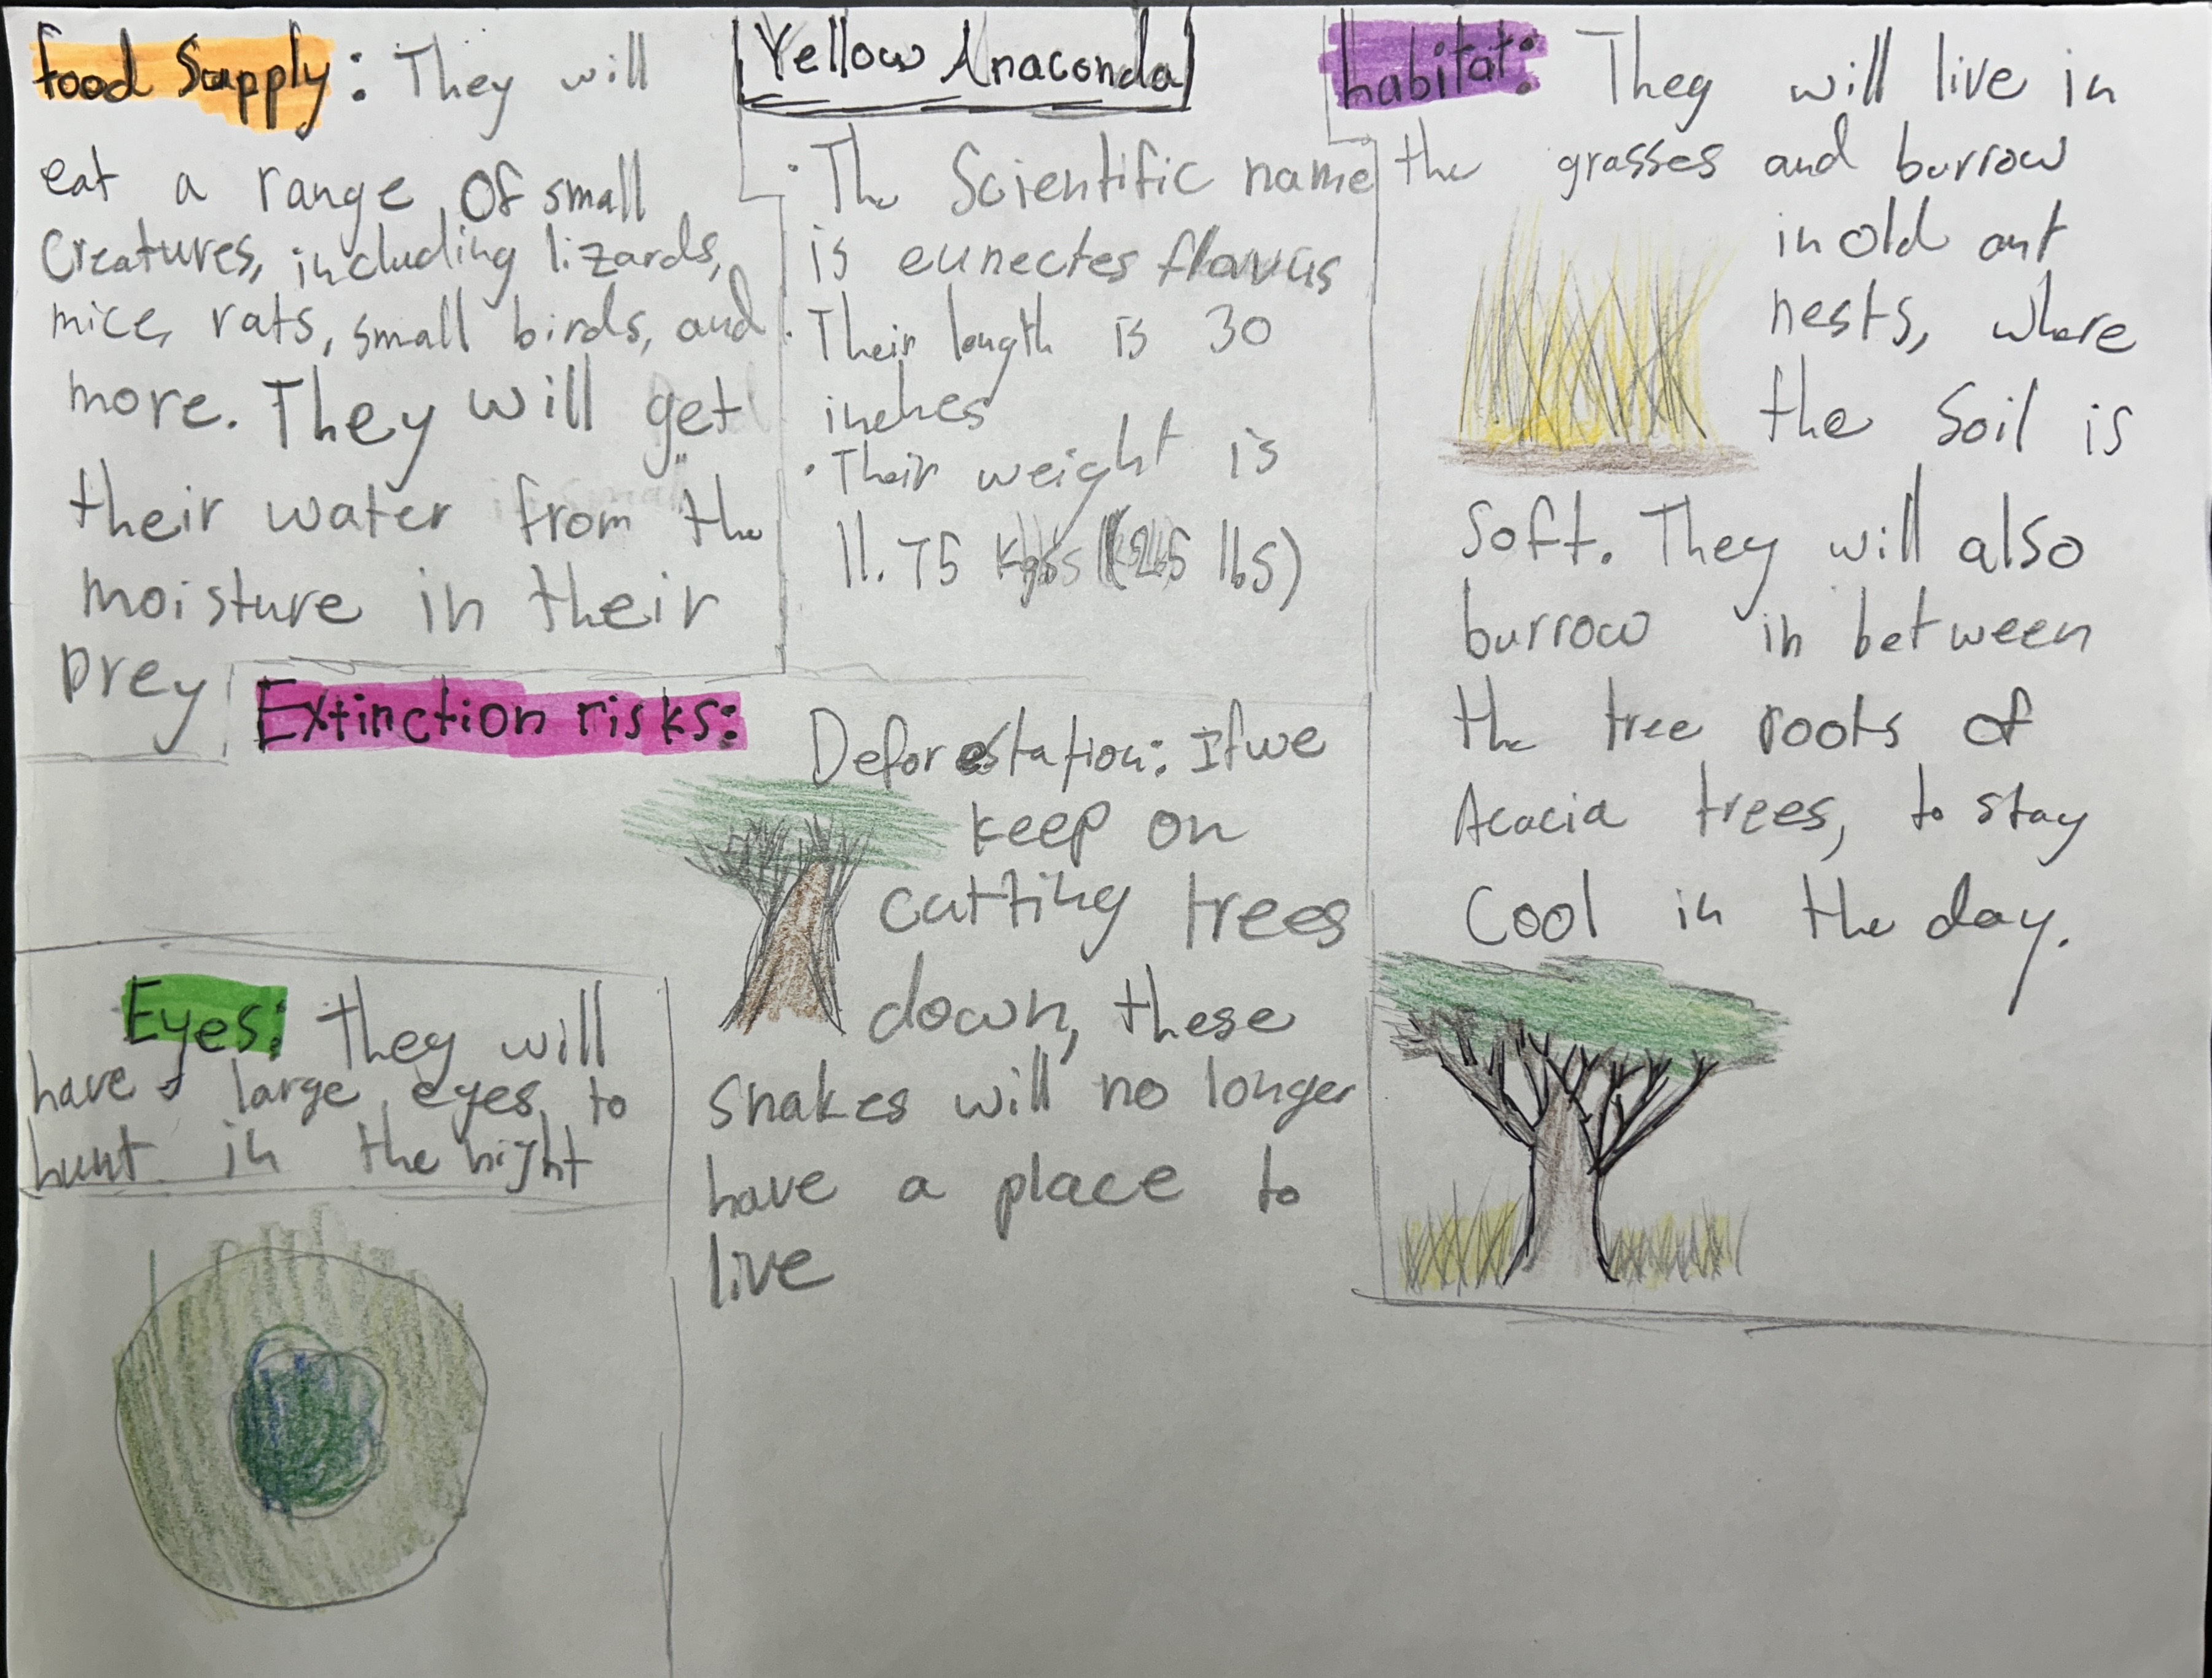 Food Supply: They will
eat a range of small
creatures, including lizards,
mice, rats, small birds, and
more. They will get
their water from the
moisture in their
prey
Yellow Anaconda
· The Scientific name
is eunectes flavus
· Their length is 30
inches
· Their weight is
11.75 (25 lbs)
habitat: They will live in
the grasses and burrow
in old ant
nests, where
the soil is
soft. They will also
burrow in between
the tree roots of
Acacia trees, to stay
cool in the day.
Extinction risks:
Deforestation: If we
keep on
cutting trees
down, these
snakes will no longer
have a place to
live
Eyes: they will
have large eyes to
hunt in the night